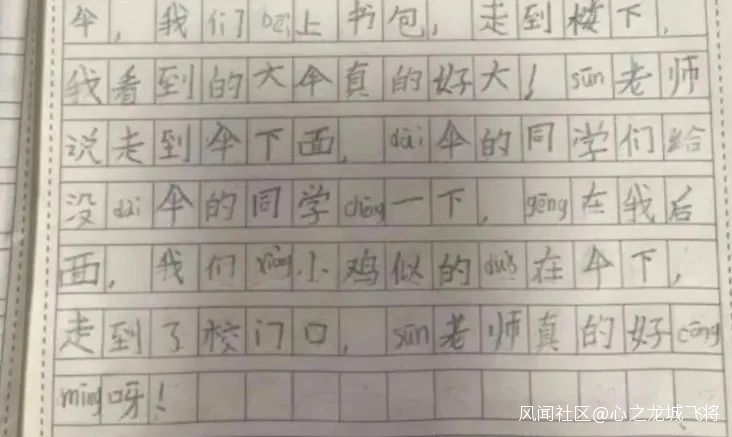 伞，我们bēi上书包，走到楼下，
我看到的大伞真的好大！sūn老师
说走到伞下面，dài伞的同学们给
没dài伞的同学chēng一下，gēng在我后
面，我们xiàng小鸡似的duǒ在伞下，
走到了校门口，sūn老师真的好cōng
míng呀！
风闻社区@心之龙城飞将